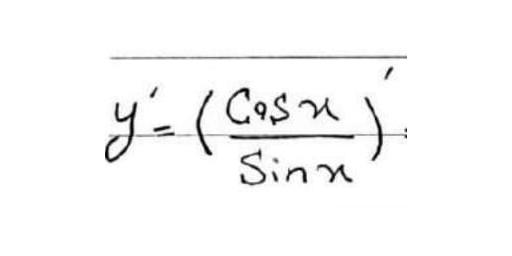 y' = (Cos x / Sin x)'